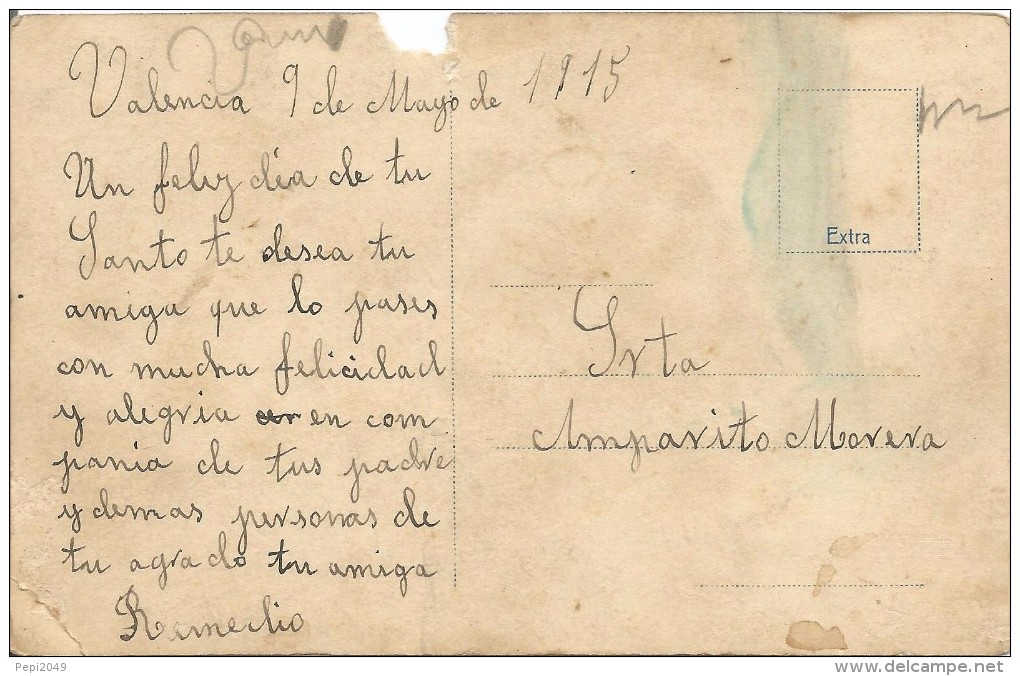 Valencia 9 de Mayo de 1915
Un feliz día de tu
Santo te desea tu
amiga que lo pases
con mucha felicidad
y alegria en com
pania de tus padre
y demas personas de
tu agrado tu amiga
Remedio
Extra
Srta
Amparito Morera
Pepi2049
www.delcampe.net